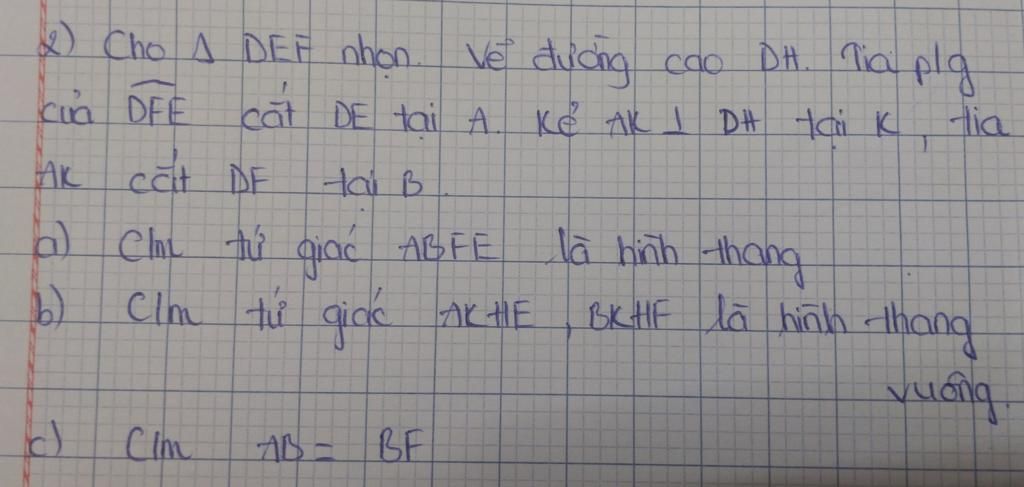 2) Cho Δ DEF nhọn. Vẽ đường cao DH. Tia p/g
của DFE cắt DE tại A. Kẻ AK ⊥ DH tại K, tia
AK cắt DF tại B.
a) C/m tứ giác ABFE là hình thang
b) C/m tứ giác AKHE, BKHF là hình thang
vuông.
c) C/m AB = BF